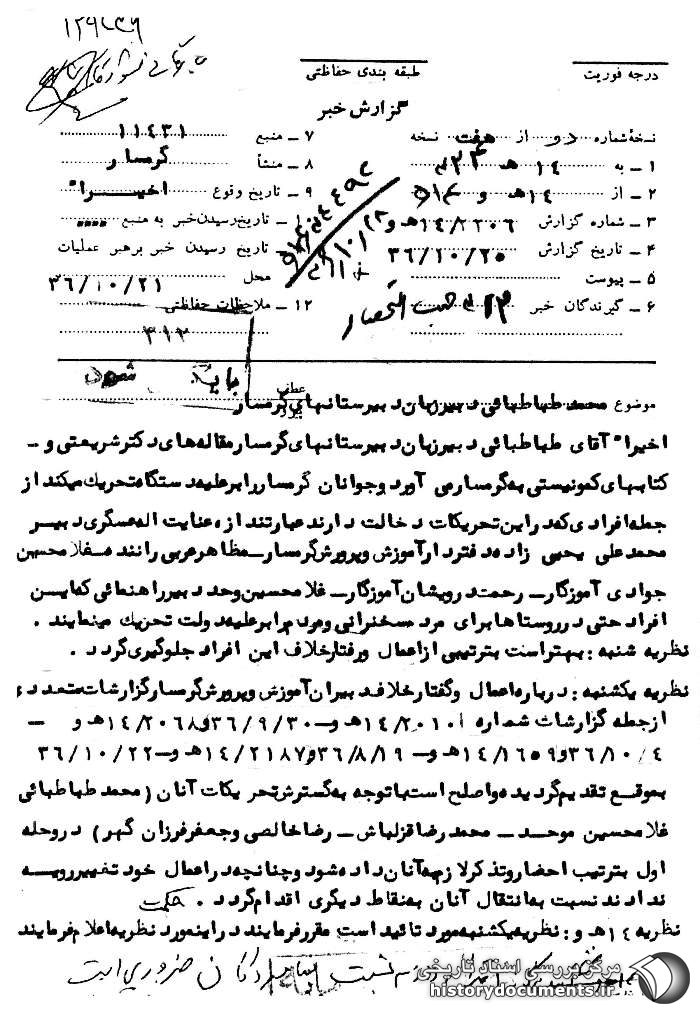 ۱۲۹۸۳۶
درجه فوریت
طبقه بندی حفاظتی
گزارش خبر
نسخه شماره دو از هفت نسخه
۱ ـ به ۳۴۱ ۱۴ هـ
۲ ـ از ۱۴ هـ و
۳ ـ شماره گزارش ۱۴/۲۲۰۶ هـ و
۴ ـ تاریخ گزارش ۳۶/۱۰/۲۵
۵ ـ پیوست
۶ ـ گیرندگان خبر
۷ ـ منبع ۱۱۴۳۱
۸ ـ منشأ گرمسار
۹ ـ تاریخ وقوع اخیراً
۱۰ ـ تاریخ رسیدن خبر به منبع
تاریخ رسیدن خبر برهبر عملیات
محل ۳۶/۱۰/۲۱
۱۲ ـ ملاحظات حفاظتی
۳۱۲
باید شود
عطف
موضوع محمد طباطبائی دبیر زبان دبیرستانهای گرمسار
اخیراً آقای طباطبائی دبیر زبان دبیرستانهای گرمسار مقاله های دکتر شریعتی و ـ
کتابهای کمونیستی به گرمسار می آورد و جوانان گرمسار را بر علیه دستگاه تحریک میکند از
جمله افرادی که در این تحریکات دخالت دارند عبارتند از ، عنایت اله عسگری دبیر
محمد علی یحیی زاده دفتردار آموزش و پرورش گرمسار ـ مظاهر عربی راننده ـ غلامحسین
جوادی آموزگار ـ رحمت درویشان آموزگار ـ غلامحسین وحد دبیر راهنمائی که این
افراد حتی در روستاها برای مردم سخنرانی و مردم را بر علیه دولت تحریک مینمایند .
نظریه شنبه : بهتر است بترتیبی از اعمال و رفتار خلاف این افراد جلوگیری گردد .
نظریه یکشنبه : درباره اعمال و گفتار خلاف دبیران آموزش و پرورش گرمسار گزارشات متعددی
از جمله گزارشات شماره ۱۴/۲۰۱۰ هـ و ـ ۳۶/۹/۳۰ و ۱۴/۲۰۶۸ هـ و ـ
۳۶/۱۰/۴ و ۱۴/۱۶۵۹ هـ و ـ ۳۶/۸/۱۹ و ۱۴/۲۱۸۷ هـ و ـ ۳۶/۱۰/۲۲
بموقع تقدیم گردیده و اصلح است با توجه به گسترش تحریکات آنان ( محمد طباطبائی
غلامحسین موحد ـ محمد رضا قزلباش ـ رضا خالصی و جعفر فرزان گهر ) در وحله
اول بترتیب احضار و تذکر لازم به آنان داده شود و چنانچه در اعمال خود تغییر رویه
ندادند نسبت به انتقال آنان به نقاط دیگری اقدام گردد . حکمت
نظریه ۱۴ هـ و : نظریه یکشنبه مورد تائید است مقرر فرمایند در اینمورد نظریه اعلام فرمایند
نسبت ضروری است
مرکز بررسی اسناد تاریخی
historydocuments.ir